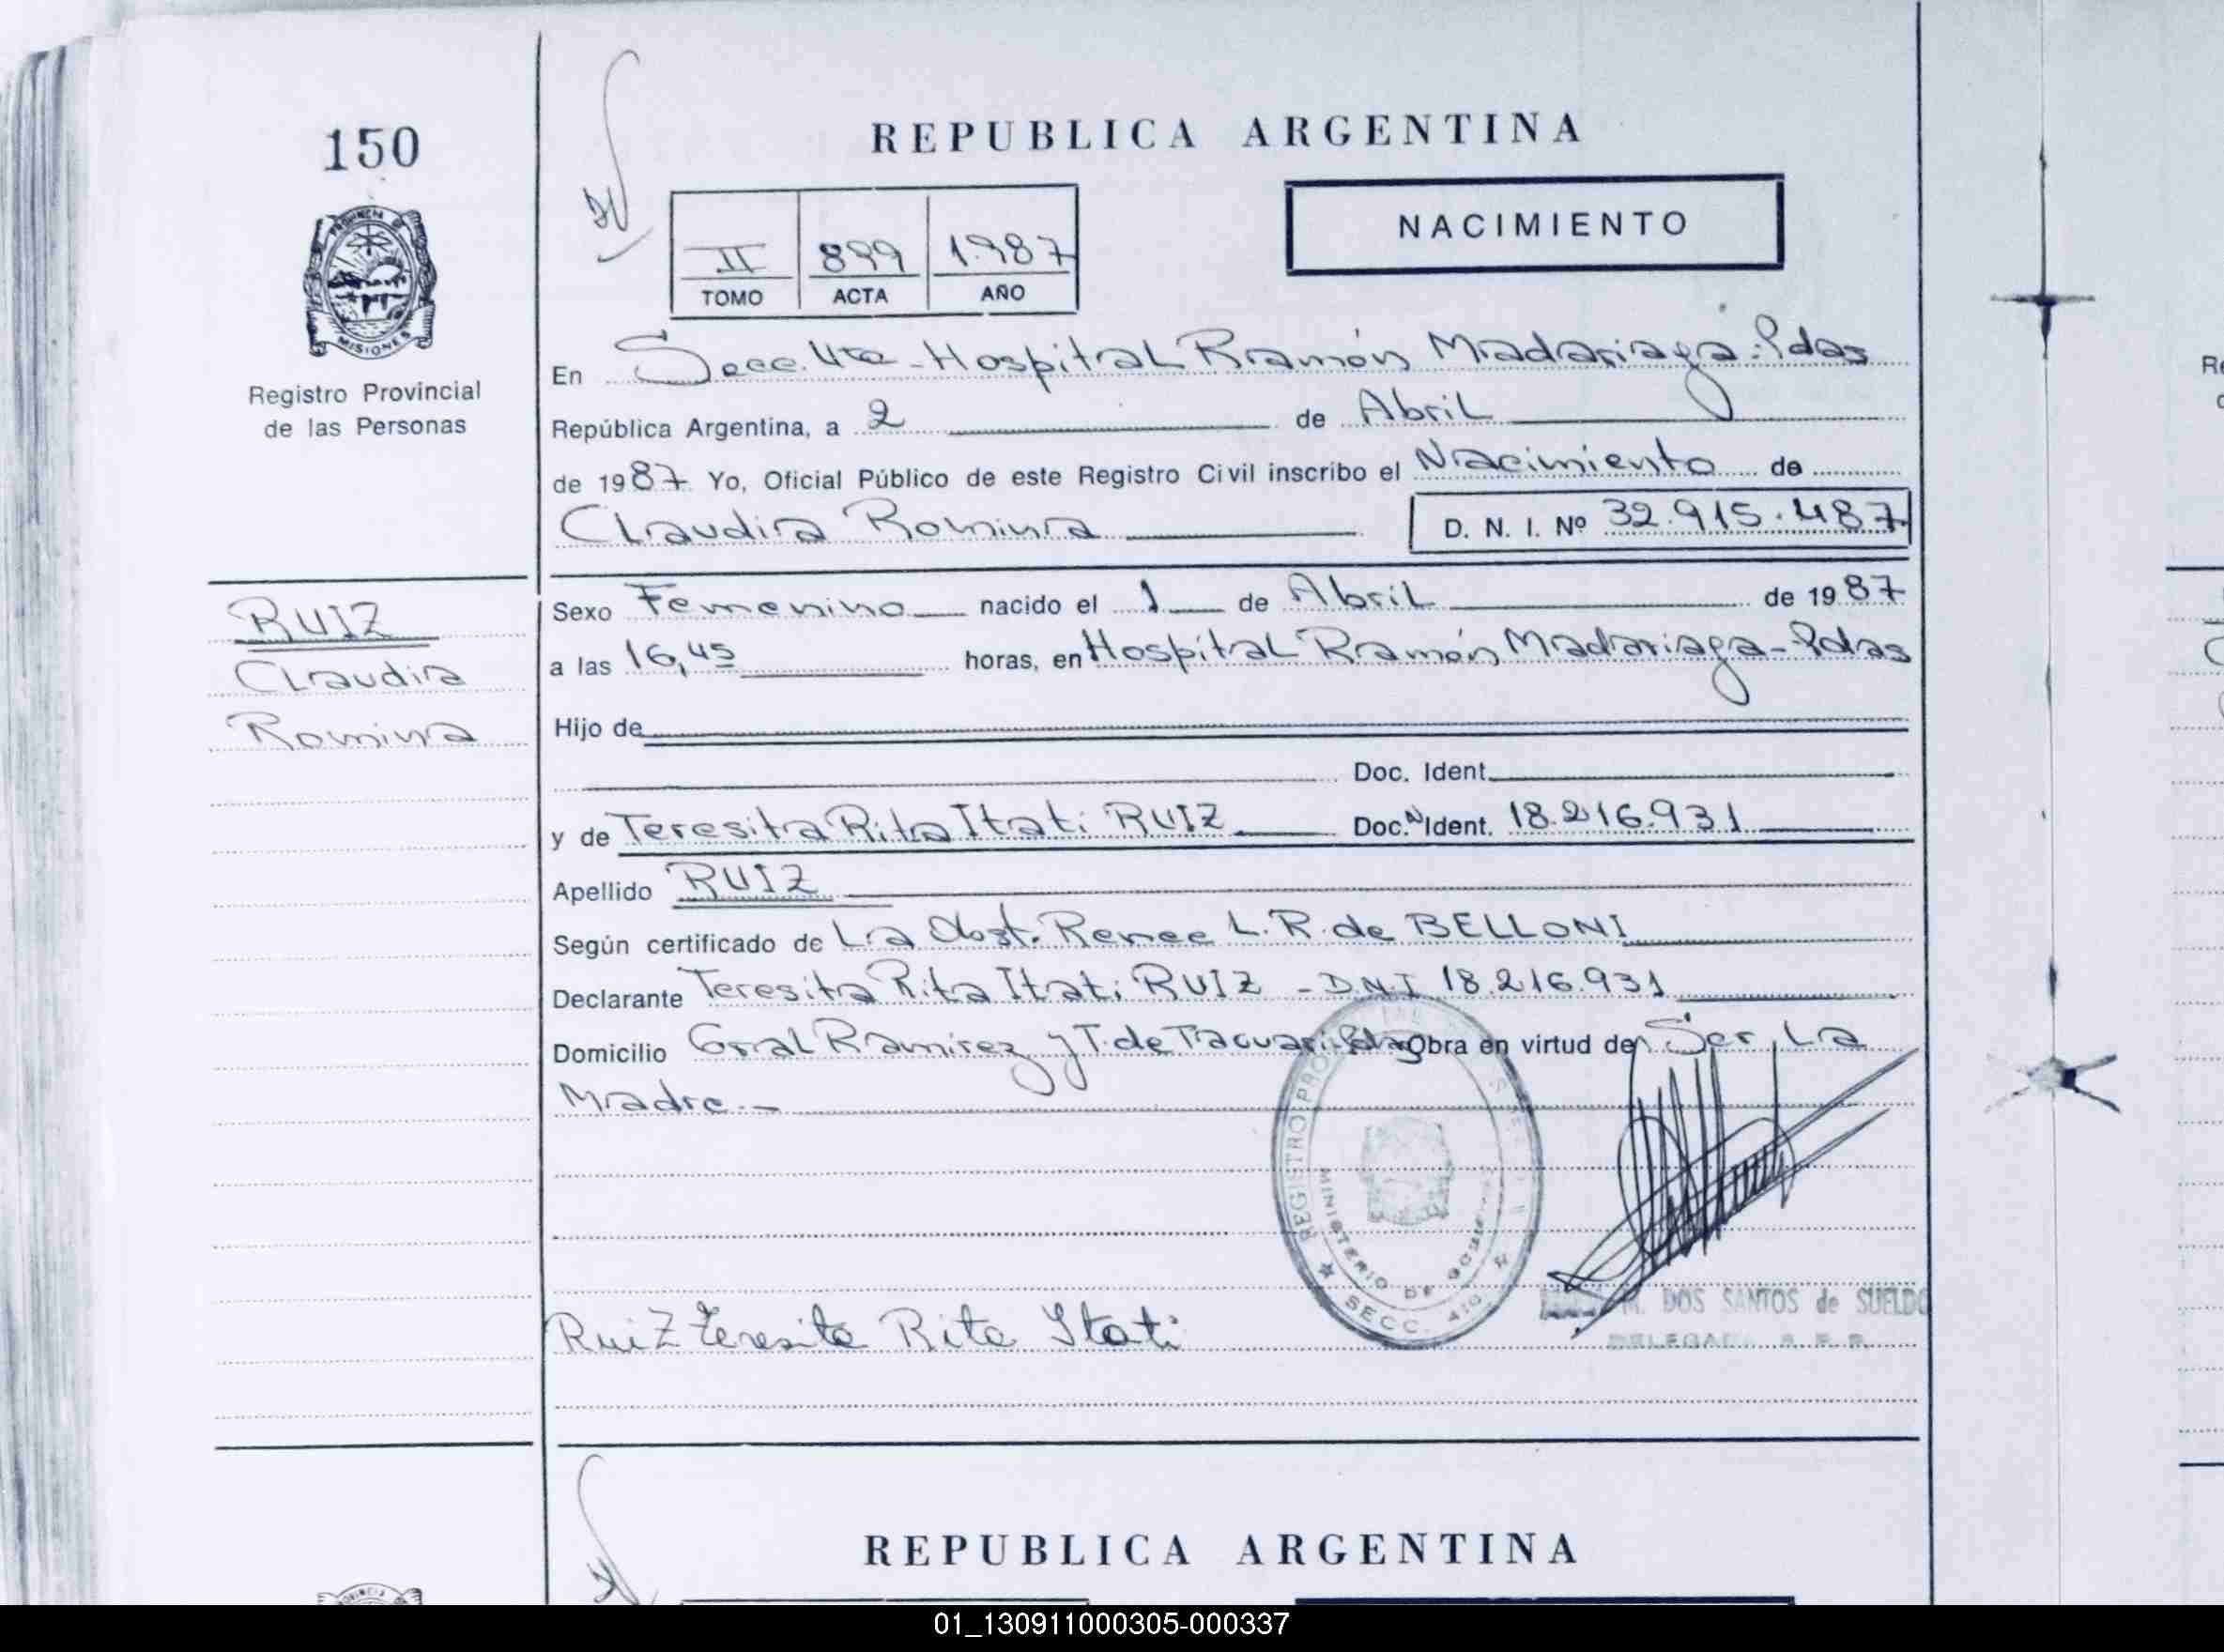 150
PROVINCIA D
MISIONES
Registro Provincial
de las Personas
REPUBLICA ARGENTINA
NACIMIENTO
II 899 1.987
TOMO ACTA AÑO
En Secc. 4ta - Hospital Ramón Madariaga - Pdas
República Argentina, a 2 de Abril
de 1987 Yo, Oficial Público de este Registro Civil inscribo el Nacimiento de
Claudia Romina D. N. I. Nº 32.915.487
RUIZ
Claudia
Romina
Sexo Femenino nacido el 1 de Abril de 1987
a las 16,45 horas, en Hospital Ramón Madariaga - Pdas
Hijo de
Doc. Ident.
y de Teresita Rita Itati RUIZ Doc. N Ident. 18.216.931
Apellido RUIZ
Según certificado de La Obst. Renee L. R. de BELLONI
Declarante Teresita Rita Itati RUIZ - DNI 18.216.931
Domicilio Gral Ramirez y T. de Tacuari Pdas Obra en virtud de Ser La
Madre.-
REGISTRO PRO
MINISTERIO DE GO
SECC. 4
M. DOS SANTOS de SUELDO
DELEGADA R. P. P.
Ruiz Teresita Rita Itati
REPUBLICA ARGENTINA
01_130911000305-000337